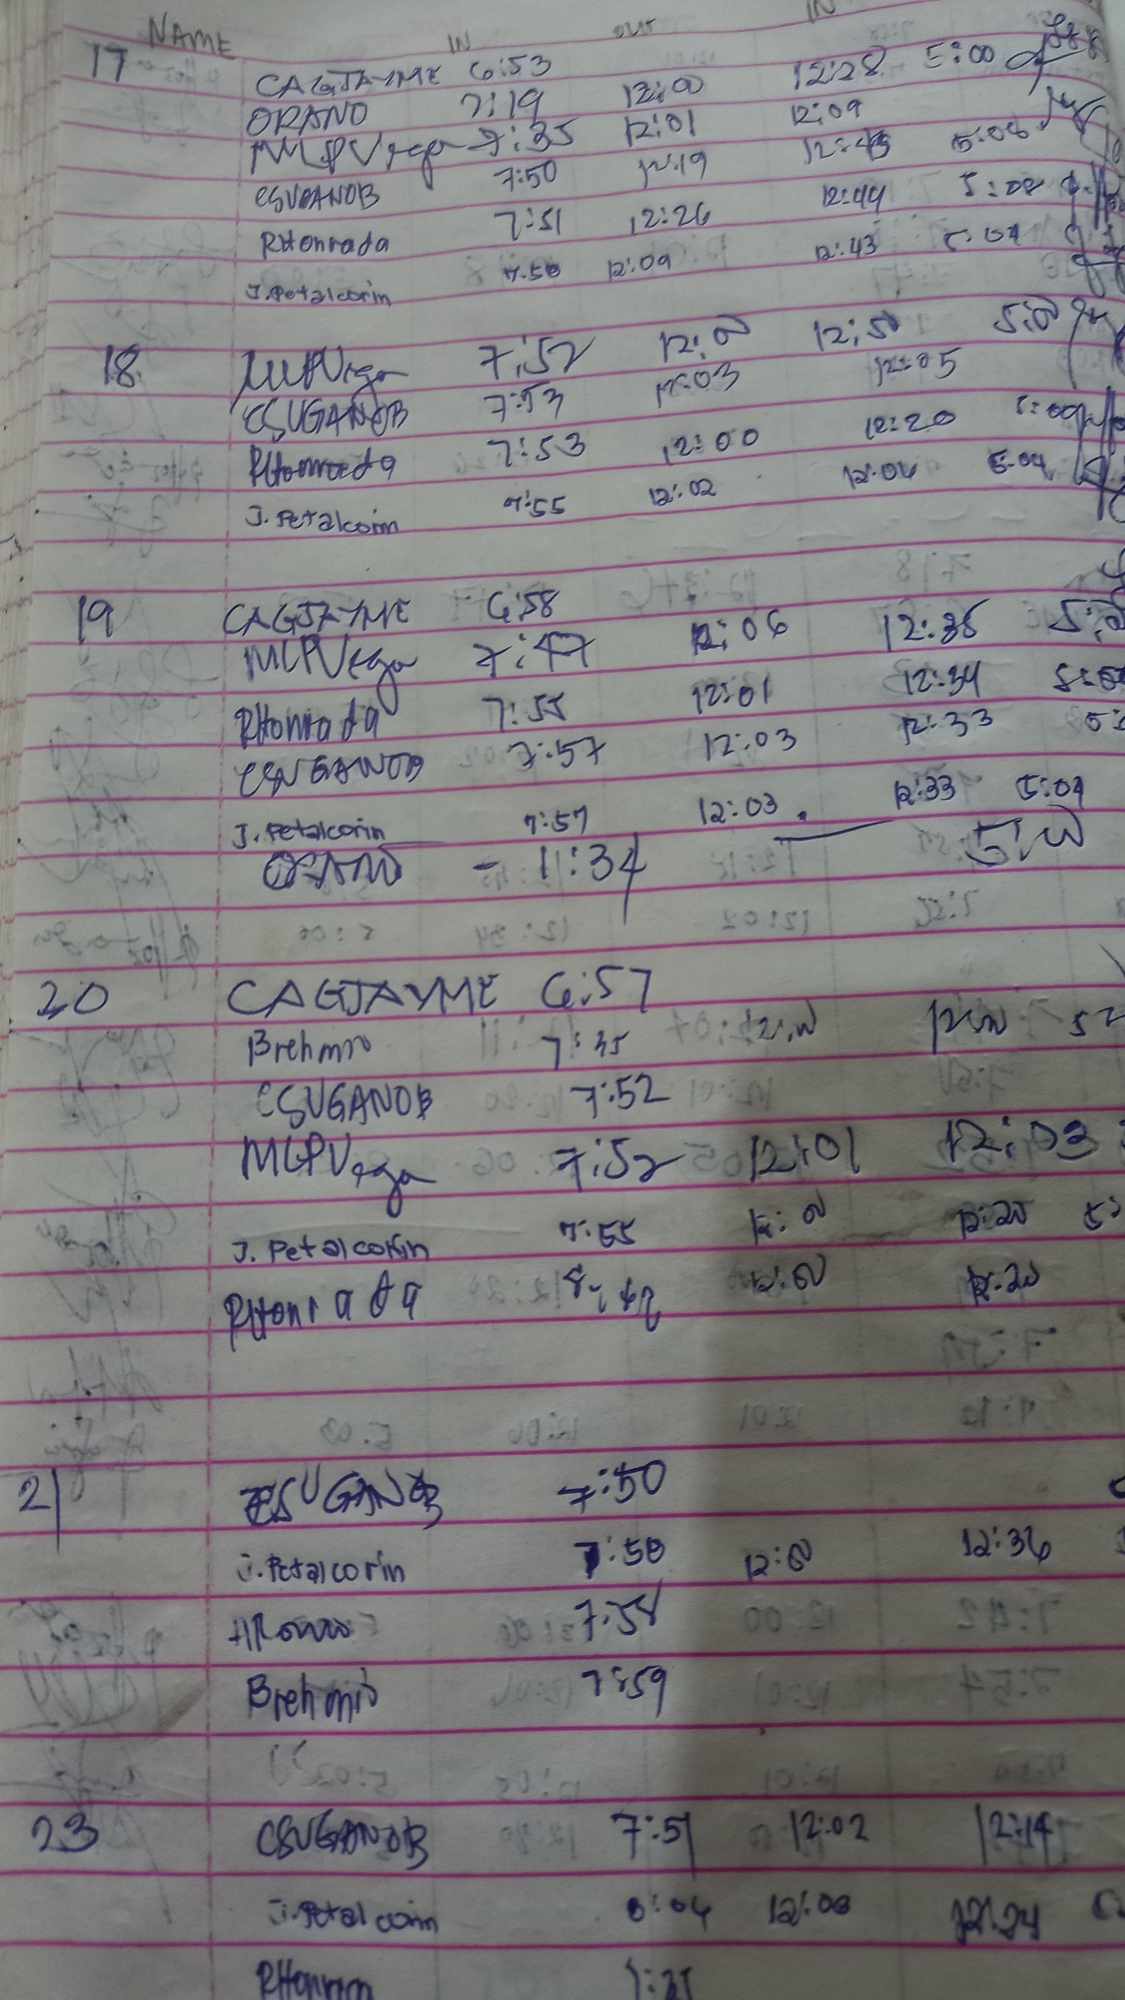 NAME IN OUT IN
17 CAGJAYME 6:53
ORANO 7:19 12:00 12:28 5:00
MLPVega 7:35 12:01 12:09
CSUGANOB 7:50 12:19 12:43 5:08
RHonrada 7:51 12:26 12:44 5:08
J.Petalcorin 7:50 12:09 12:43 5:04
18 MLPVega 7:52 12:00 12:50 5:00
CSUGANOB 7:53 12:03 12:05
RHonrada 7:53 12:00 12:20 5:00
J. Petalcorin 7:55 12:02 12:04 5:04
19 CAGJAYME 6:58
MLPVega 7:47 12:06 12:35
RHonrada 7:55 12:01 12:34
CSUGANOB 7:57 12:03 12:33
J. Petalcorin 7:57 12:03 12:33 5:04
ORANO - 11:34 5:00
20 CAGJAYME 6:57
Brehmio 7:35 12:00
CSUGANOB 7:52
MLPVega 7:52 12:01 12:03
J. Petalcorin 7:55 12:00 12:20
RHonrada 12:00 12:20
21 CSUGANOB 7:50
J. Petalcorin 7:50 12:00 12:36
7:58
Brehmio 7:59
23 CSUGANOB 7:51 12:02 12:14
J. Petalcorin 8:04 12:03 12:24